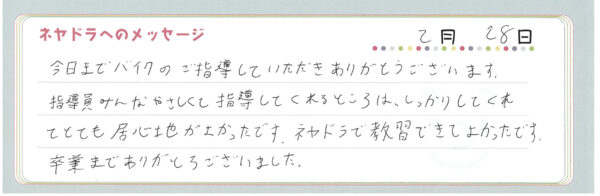 ネヤドラへのメッセージ
2月 28日
今日までバイクのご指導していただきありがとうございます。
指導員みんなやさしくて指導してくれるところは、しっかりしてくれ
てとても居心地がよかったです。ネヤドラで教習できてよかったです。
卒業までありがとうございました。